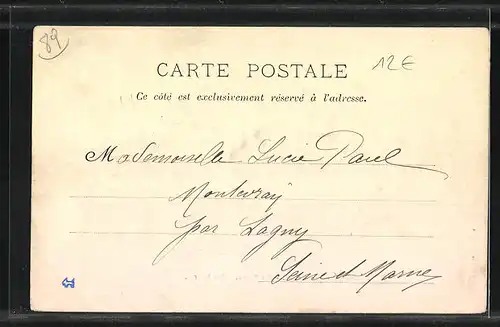 89
12€
CARTE POSTALE
Ce côté est exclusivement réservé à l'adresse.
Mademoiselle Lucie Paul
Montevray
par Lagny
Seine et Marne